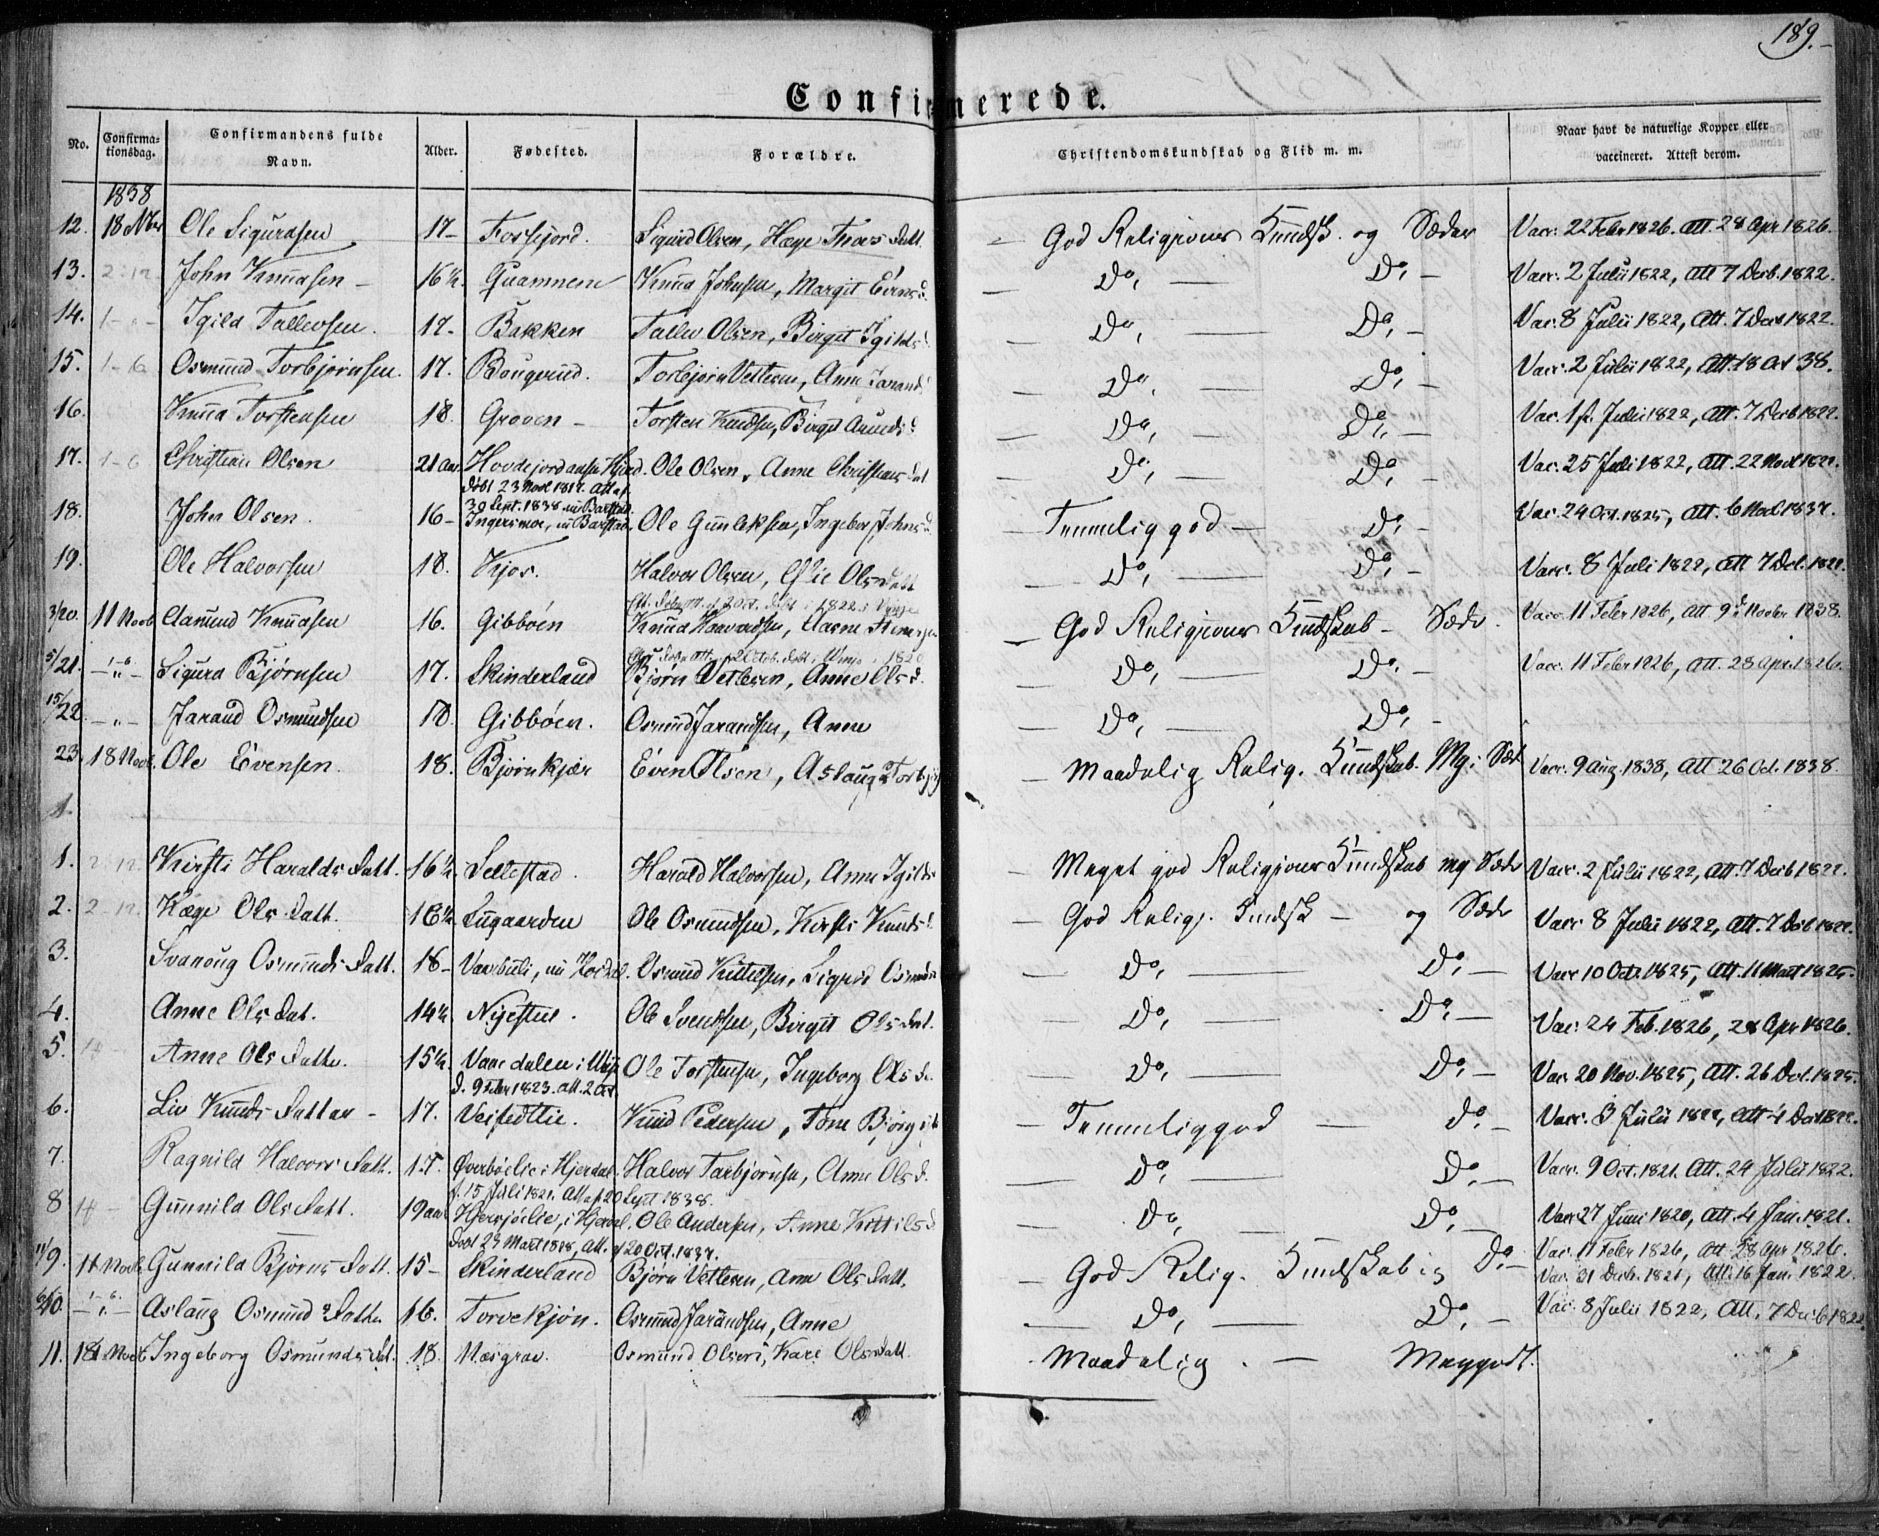 189.
Confirmerede.
No. Confirmationsdag. Confirmandens fulde Navn. Alder. Fødested. Forældre. Christendomskundskab og Flid m. m. Naar havt de naturlige Kopper eller vaccineret. Attest derom.
1838
12. 18 Nbr Ole Sigurdsen 17- Fossejord. Sigurd Olsen, Hæge Thors Datt. God Religions Kundsk. og Sæder Vacc. 22 Febr 1826. att. 28 Apr 1826.
13. 2-12. John Knudsen 16½. Guamnene Knud Johnsen, Margit Evensd. Do, Do, Vacc. 2 Julii 1822, att 7 Decb. 1822.
14. Igild Tallevsen. 17- Bakken Tallev Olsen, Birgit Igilds Do, Do, Vac. 8 Julii 1822, Att. 7 Decb 1822.
15. 1-6 Osmund Torbjørnsen. 17. Bougerud. Torbjørn Vetlesen, Anne Jarands Do, Do, Vacc. 2 Julii 1822, Att. 18 Oct 38.
16. Knud Torstensen 18. Groven Torsten Knudsen, Birgit Amunds Do, Do, Vac. 1ste Julii 1822, Att. 7 Decb 1822.
17. 1-6 Christian Olsen 21 aar Hovdejord Ole Olsen, Anne Christens Dat Do, Do, Vac. 25 Juli 1822, Att. 22 Novb 1822.
døbt 23 Novb 1817. Att af
30 Sept. 1838
18. John Olsen. 16- Ingersmoe, Ole Gunleksen, Ingebor Johnsd. Temmelig god Do. Vac. 24 Oct. 1825, Att. 6 Novb 1837.
19. Ole Halvorsen 18. Kjos. Halvor Olsen, Olsdatt Do, Do, Vacc. 8 Juli 1822, Att 7 Dec. 1822.
3/20. 11 Novb Aamund Knudsen 16. Gibbøen Knud Haavardsen, Aasne God Religions Kundskab Sæder. Vacc. 11 Febr 1826, Att 9de Novbr 1838.
5/21. Sigurd Bjørnsen 17. Skinderland Bjørn Vetlesen, Anne Olsd. Do, Do. Vacc. 11 Febr 1826, Att. 28 Apr. 1826.
15/22. Jarand Osmundsen 18. Gibbøen. Osmund Jarandsen, Anne Do, Do,
23. 18 Novb. Ole Evensen. 18. Bjørnkjær Even Olsen, Aslaug Torbj Maadelig Relig. Kundskab. Mg. Sæd. Vacc. 9 Aug. 1838, Att 26 Oct. 1838.
1.
1. 2-12. Kirsti Haralds Datt. 16½ Sellestad. Harald Halvorsen, Anne Igilds Meget god Religions Kundskab og Sæder Vacc. 2 Julii 1822, Att. 7 Decb 1822.
2. 2-12. Hæge Ols Datt. 18½ Lugaarden Ole Osmundsen, Kirsti Knuds God Religs. Kundsk og Sæder Vacc. 8 Julii 1822, Att. 7 Decb 1822.
3. Svanaug Osmunds Datt. 18- Osmund Kittelsen, Sigrid Osmunds Do, Do, Vacc 10 Octr 1825, Att. 11 Mart 1825.
4. Anne Ols Dat. 14½ Nystue. Ole Svendsen, Birgit Ols Dat. Do, Do, Vac. 24 Feb. 1826, 28 Apr 1826.
5. Anne Ols Datter. 15½ Vaae dalen i Ole Torstensen, Ingeborg Ols d. Do, Do, Vac. 20 Nov. 1825, Att. 26 Dec. 1825.
d. 9 Febr 1823. att. 2 Oct.
6. Liv Knuds Datter 17. Veistedlie. Knud Pedersen, Tone Bjørg Temmelig god Do. Vacc. 3 Julii 1822, Att 4 Dec 1822.
7. Ragnild Halvors Datt. 17. Øverbølie i Hjerdal. Halvor Torbjørnsen, Anne Olsd. Do, Do, Vacc. 9 Oct. 1821. Att. 24 Julii 1822.
f. 15 Juli 1821. Att af 20 Sept 1838.
8 Gunnild Ols Datt. 19 aar Hjersjølie, i Hjerdl. Ole Andersen, Anne Kittilsd Do, Do, Vacc. 27 Juni 1820, Att. 4 Jan. 1821.
døbt 29 Mart 1818, Att. af 20 Oct. 1837.
11/9. 11 Novb Gunnild Bjørns Datt. 15- Skinderland Bjørn Vetlesen, Anne Ols Datt. God Relig. Kundskab og Do, Vac. 11 Febr 1826, Att. 28 Apr 1826.
Vac. 31 Decb. 1821, Att. 16 Jan. 1822.
10. Aslaug Osmunds Datter 16. Torvekjøn. Osmund Jarandsen, Anne Do, Do, Vac. 8 Julii 1822, Att. 7 Decb 1822.
11. 18 Novb Ingeborg Osmunds Dat. 18. Næsgrav. Osmund Olsen, Kari Olsdatt. Maadelig. Meg godt.